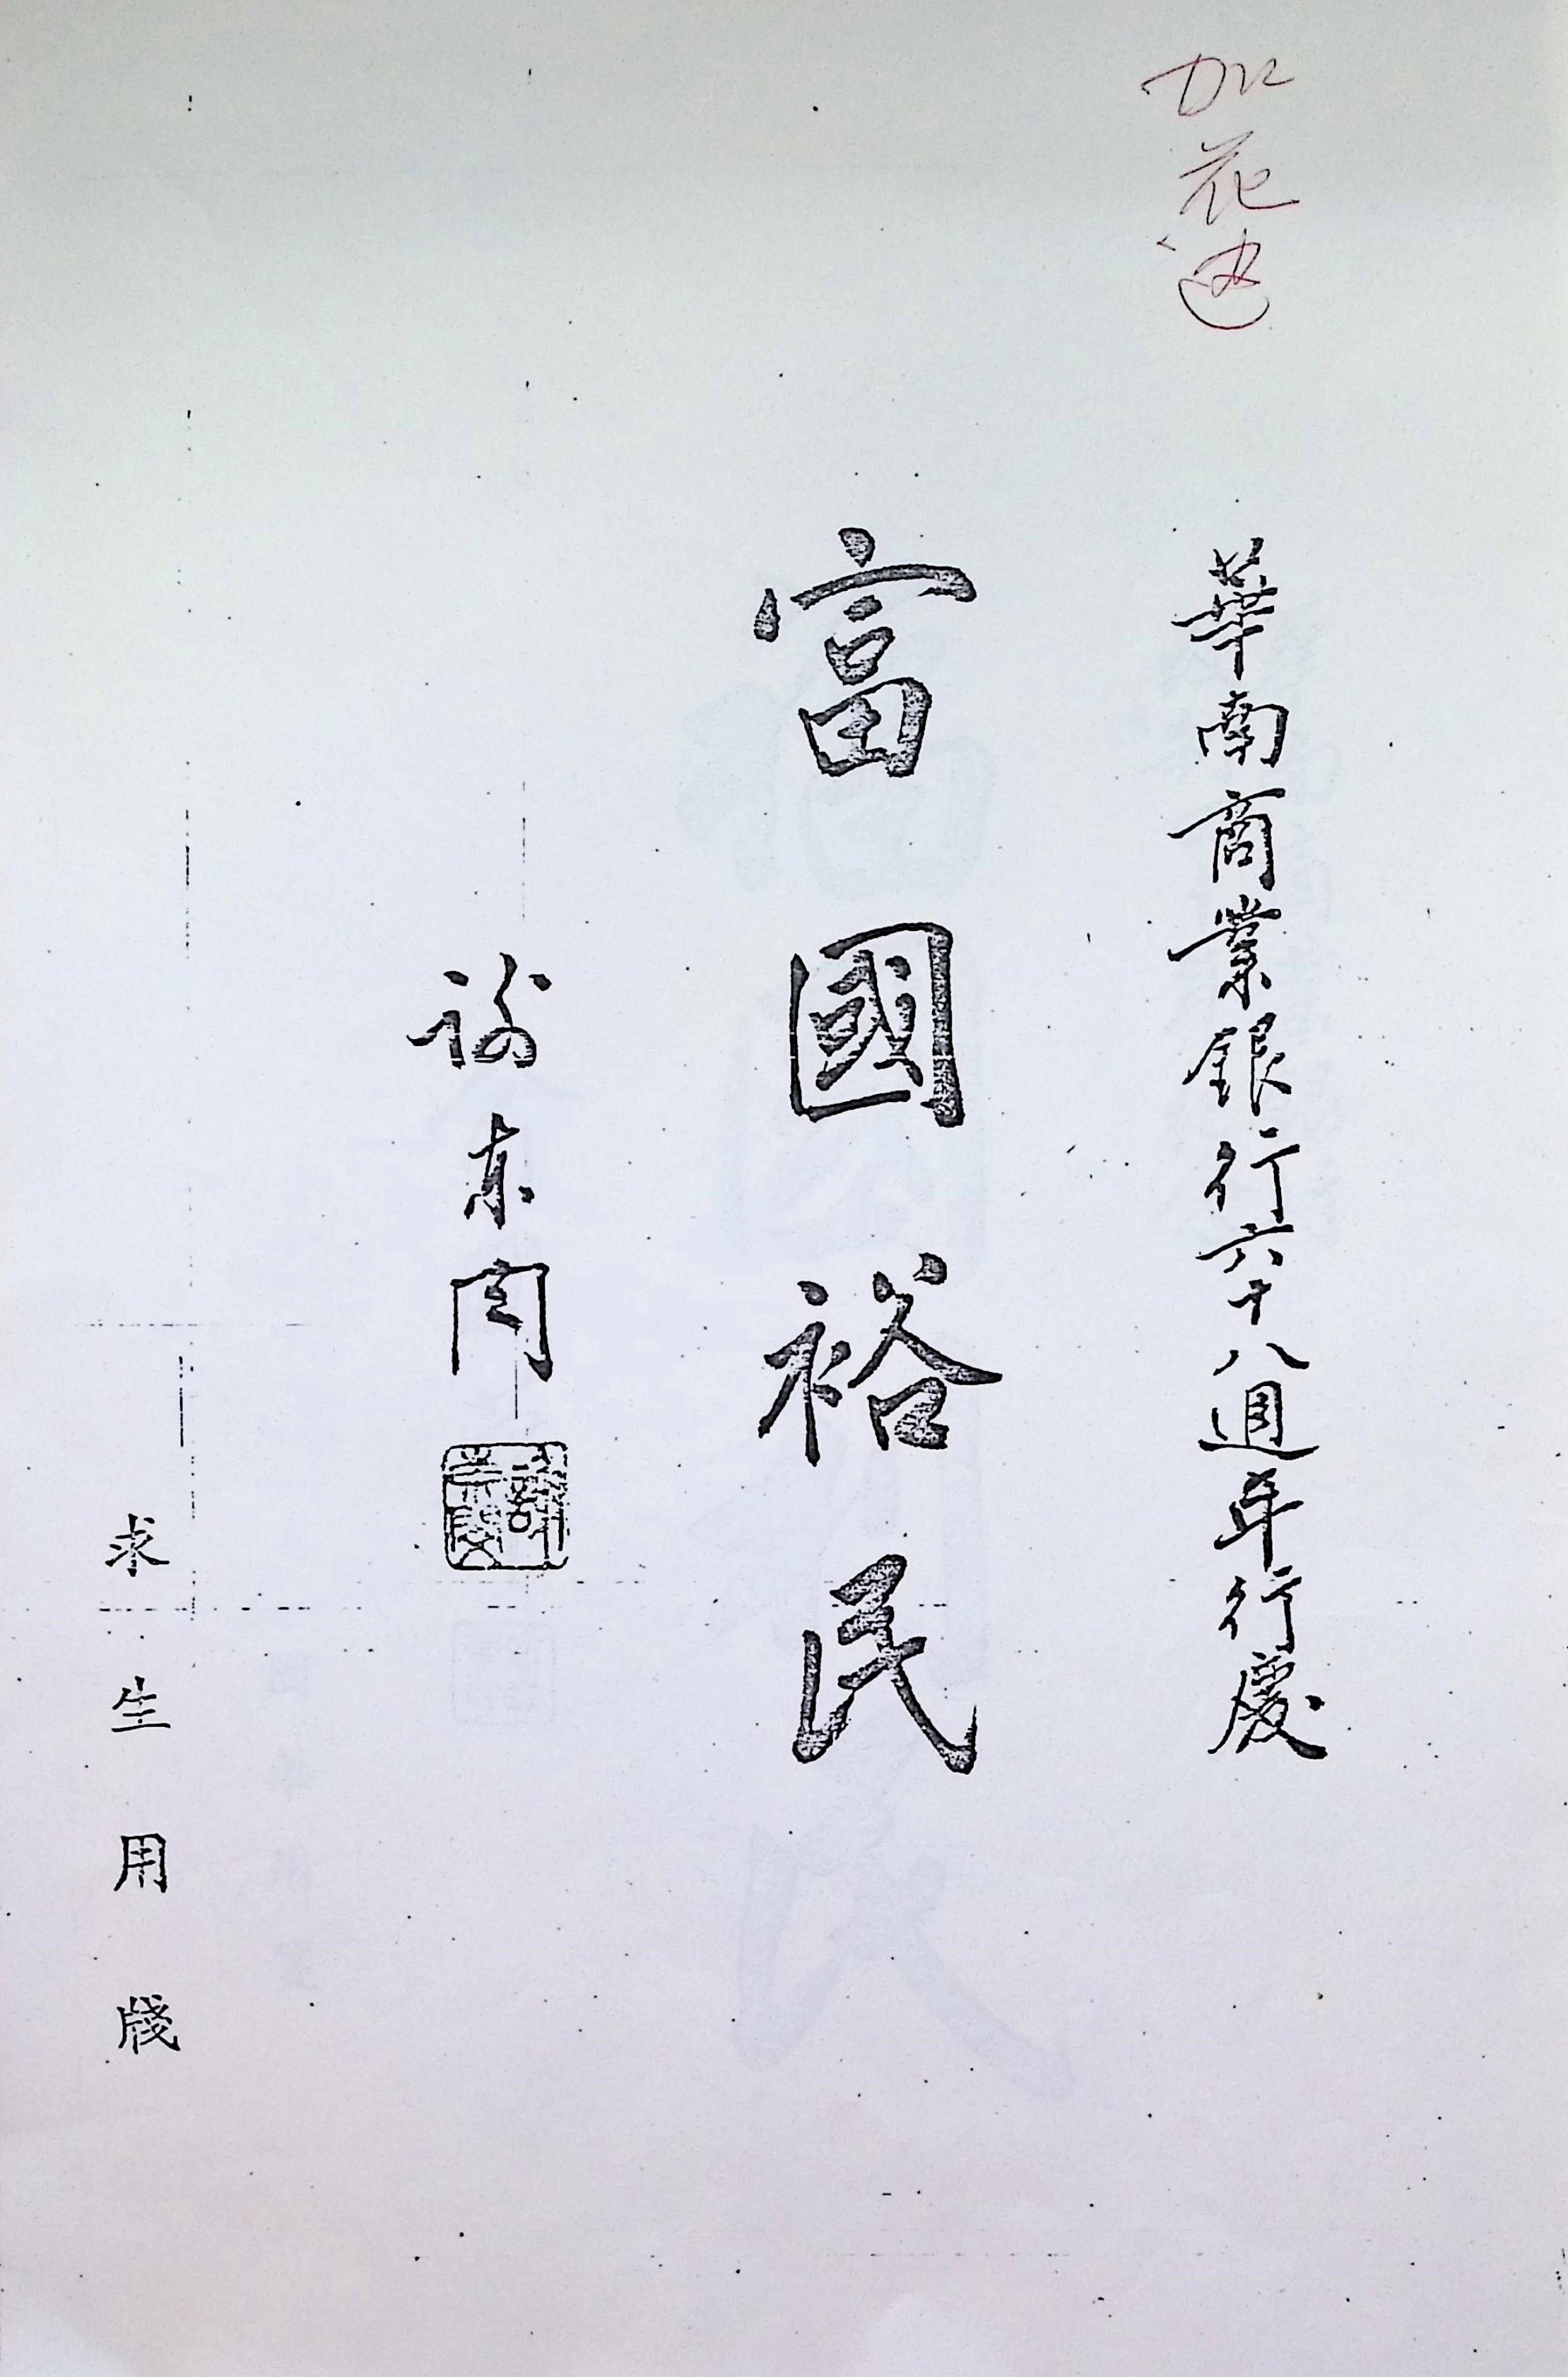 加花边
華南商業銀行六十八週年行慶
富國裕民
謝東閔
求生用牋